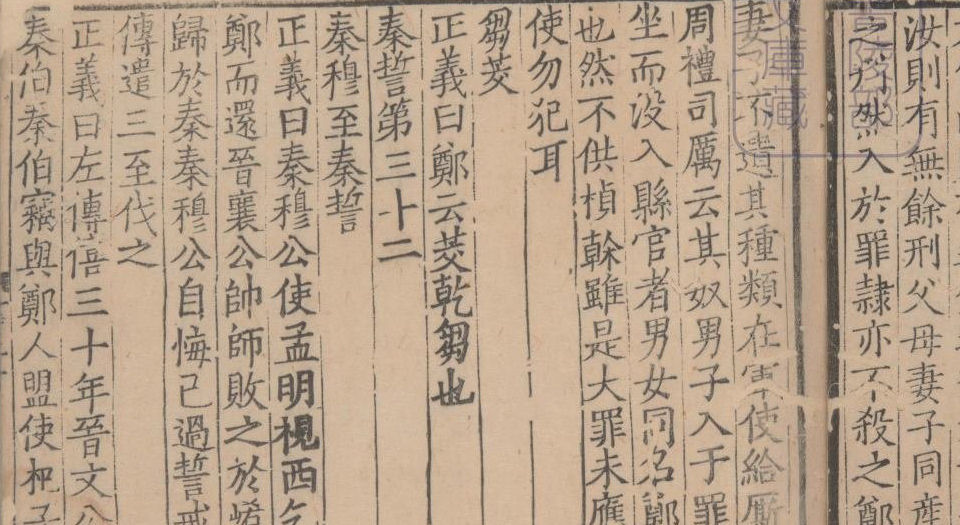 汝則有無餘刑父母妻子同產
之然入於罪隸亦不殺之鄭
妻子不遺其種類在軍使給厮
周禮司厲云其奴男子入于罪
坐而没入縣官者男女同名鄭
也然不供楨幹雖是大罪未應
使勿犯耳
芻茭
正義曰鄭云茭乾芻也
秦誓第三十二
秦穆至秦誓
正義曰秦穆公使孟明視西乞
鄭而還晉襄公帥師敗之於崤
歸於秦秦穆公自悔己過誓戒
傳遣三至伐之
正義曰左傳僖三十年晉文公
秦伯秦伯竊與鄭人盟使杞子